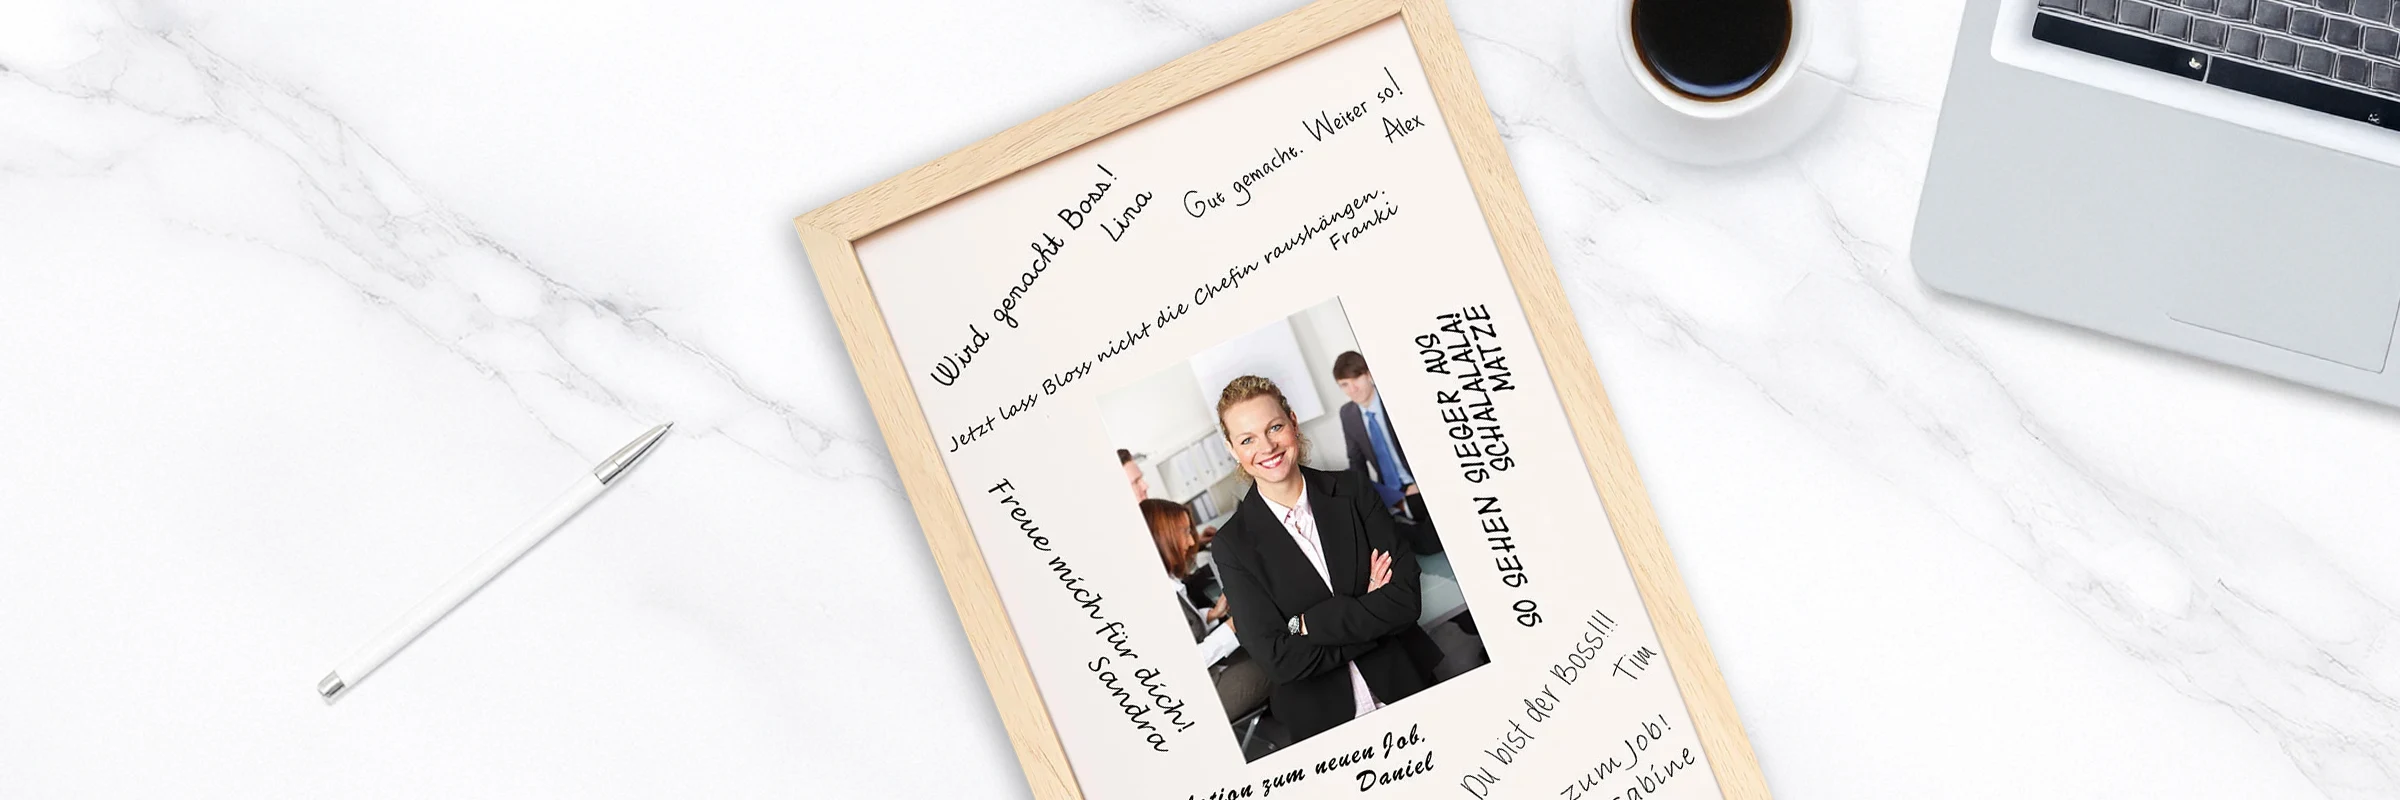 Wird gemacht Boss!
Lina
Gut gemacht. Weiter so!
Alex
Jetzt lass Bloss nicht die Chefin raushängen.
Franki
Freue mich für dich!
Sandra
SO SEHEN SIEGER AUS
SCHALALALALA!
MATZE
zum neuen Job.
Daniel
Du bist der Boss!!!
Tim
zum Job!
Sabine